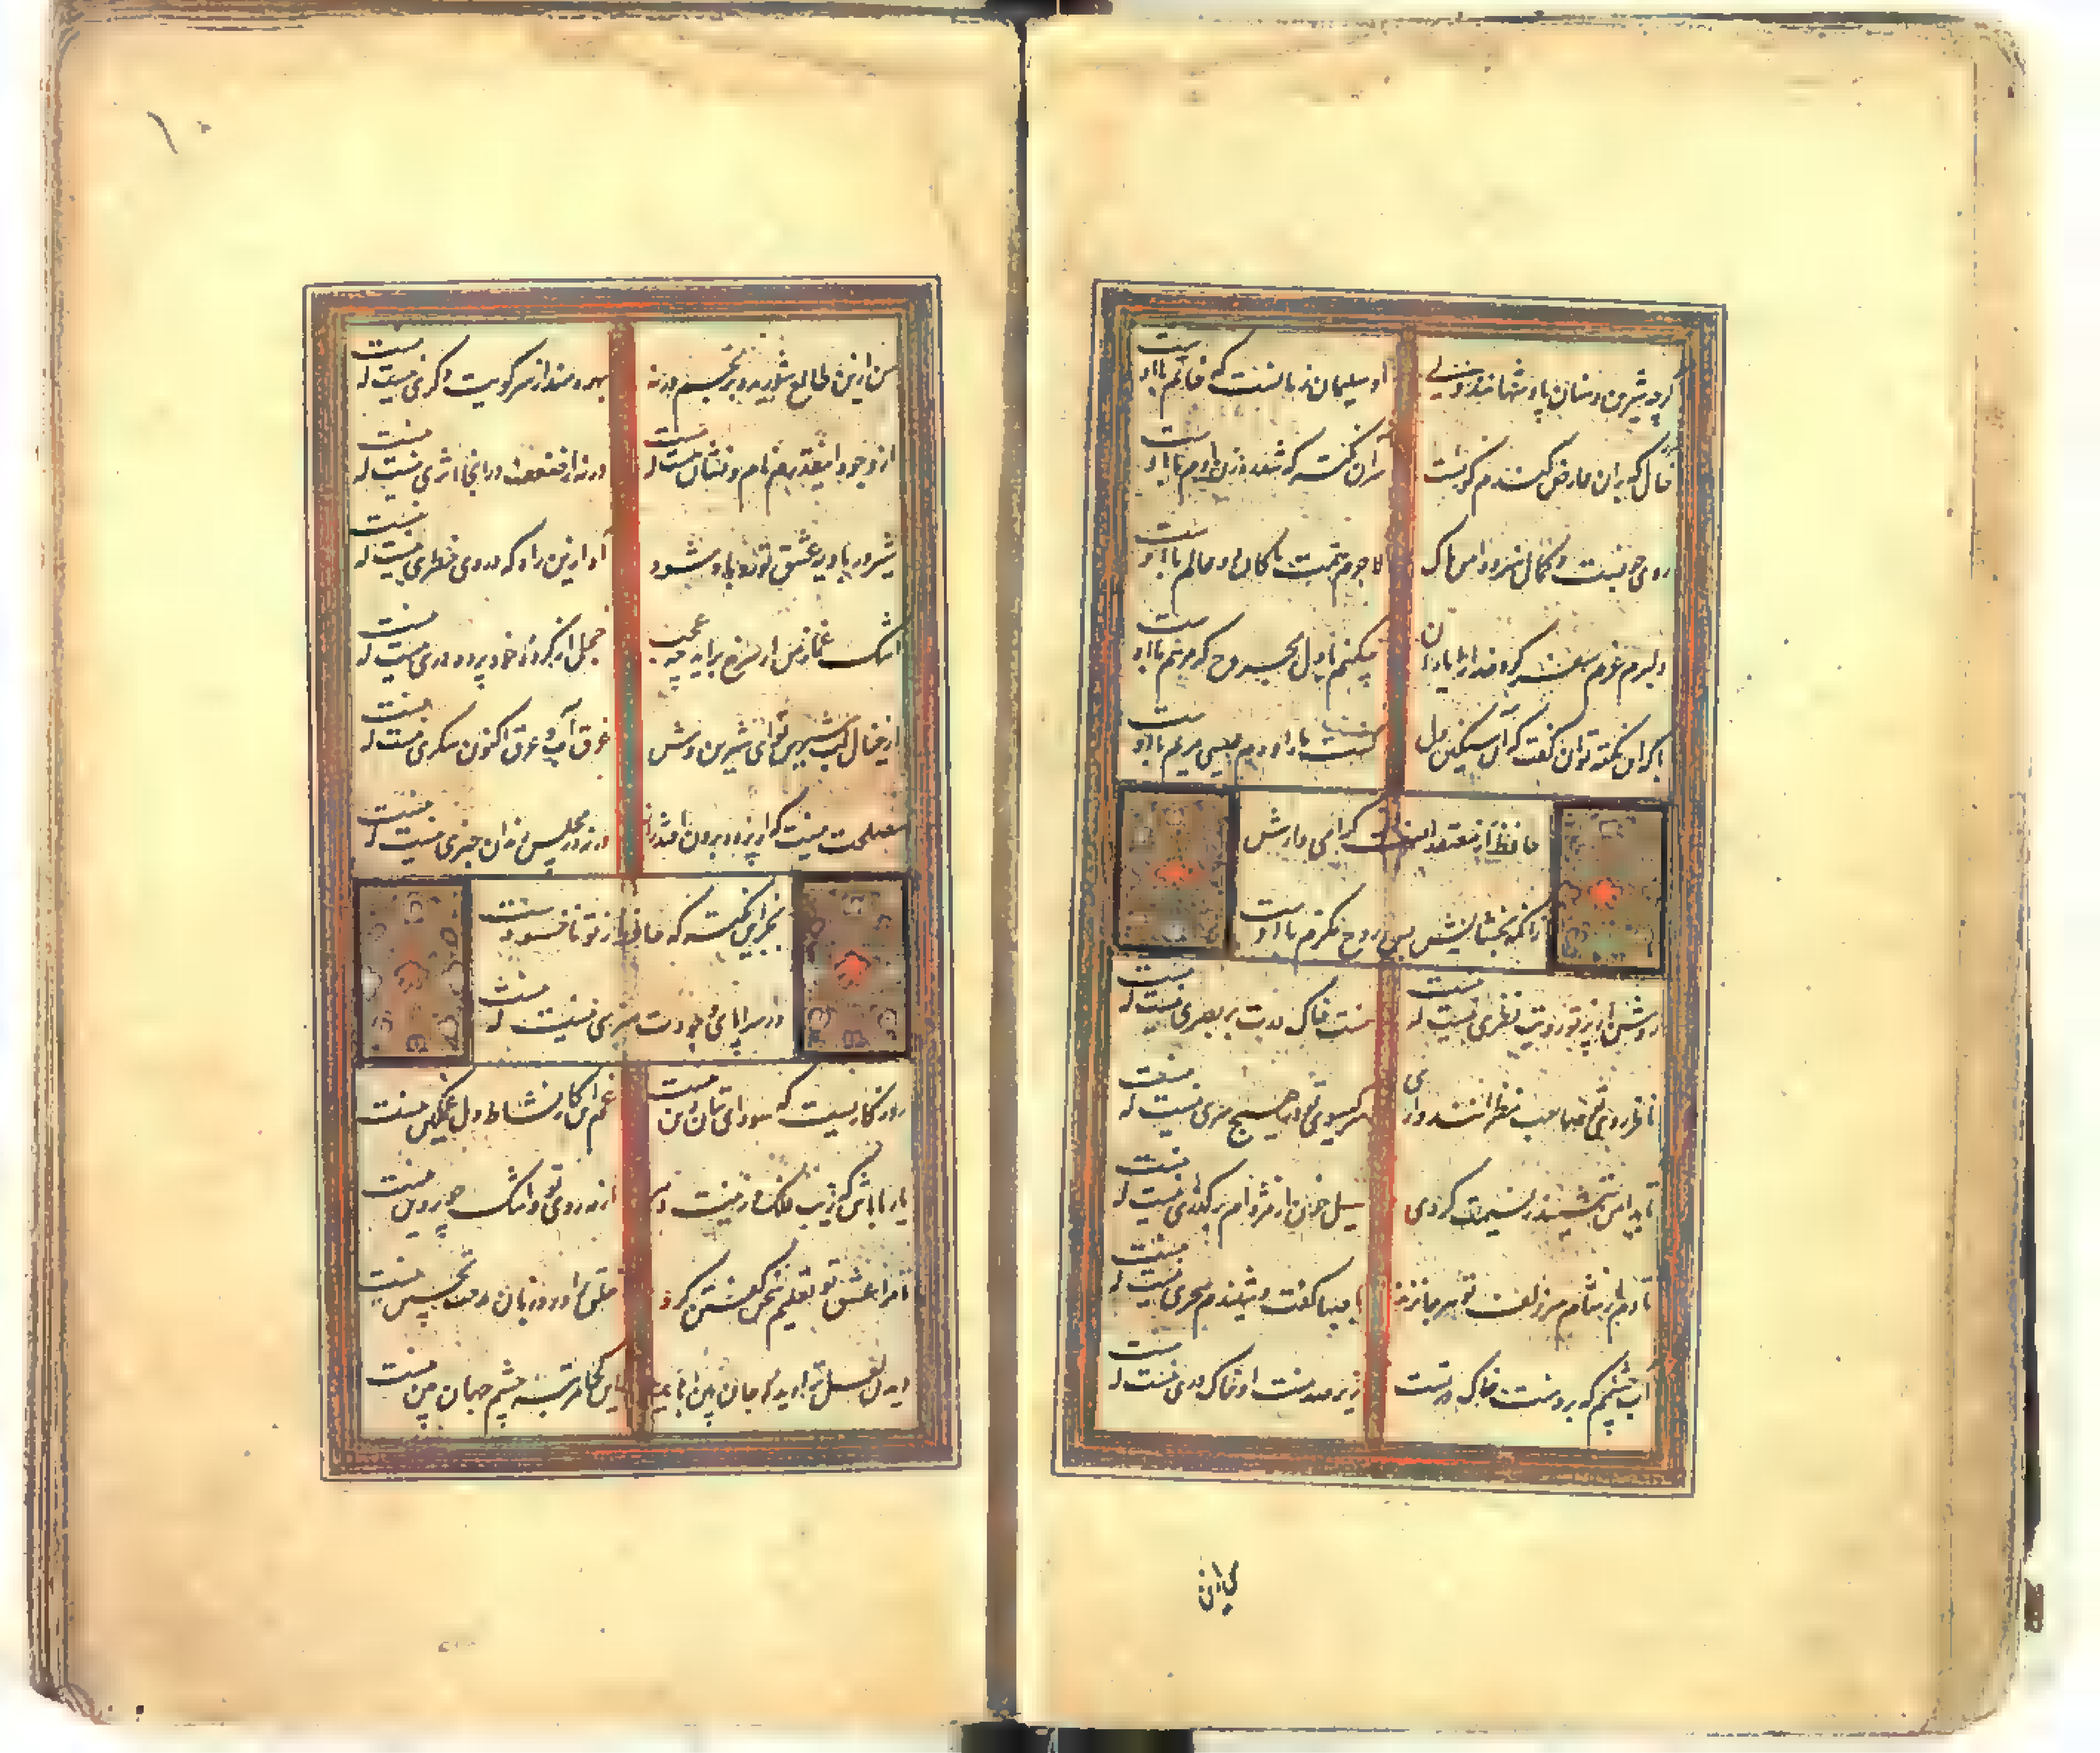 گرچه شیرین دهنان پادشهانند ولی
او سلیمان زمانست که خاتم با اوست
خال که بدان عارض گندم گونست
سر آن که شد رهزن آدم با اوست
روی خوبست و کمال هنر و دامن پاک
لاجرم همت پاکان دو عالم با اوست
دلبرم عزم سفر کرد خدا را یاران
چکنم با دل مجروح که مرهم با اوست
با که این نکته توان گفت که آن سنگین دل
کشت ما را و دم عیسی مریم با اوست
حافظ از معتقدانست گرامی دارش
زانکه بخشایش بس روح مکرم با اوست
روشن از پرتو رویت نظری نیست که نیست
منت خاک درت بر بصری نیست که نیست
ناظر روی تو صاحب نظرانند ولی
سر گیسوی تو در هیچ سری نیست که نیست
تا بدامن ننشیند ز نسیمت گردی
سیل خون از مژه‌ام بر گذری نیست که نیست
تا دم از شام سر زلف تو هر جا نزند
با صبا گفت و شنیدم سحری نیست که نیست
آب چشمم که برو منت خاک درتست
زیر صد منت او خاک دری نیست که نیست
من ازین
من ازین طالع شوریده برنجم ورنه
بهره‌مند از سر کویت دگری نیست که نیست
از وجود اینقدرم نام و نشان هست که هست
ورنه از ضعف در آنجا اثری نیست که نیست
شیر در بادیه عشق تو روباه شود
آه ازین راه که در وی خطری نیست که نیست
اشک غماز من ار سرخ برآید چه عجب
خجل از کرده خود پرده دری نیست که نیست
از خیال لب شیرین تو ای شیرین وش
غرق آب و عرق اکنون شکری نیست که نیست
مصلحت نیست که از پرده برون افتد راز
ورنه در مجلس رندان خبری نیست که نیست
بجز این نکته که حافظ ز تو ناخشنودست
در سراپای وجودت هنری نیست که نیست
روزگاریست که سودای بتان دین منست
غم این کار نشاط دل غمگین منست
یار ما باش که زیب فلک و زینت دهر
از مه روی تو و اشک چو پروین منست
تا مرا عشق تو تعلیم سخن گفتن کرد
خلق را ورد زبان مدحت تحسین منست
دیدن لعل ترا دیده جان بین باید
این کجا مرتبه چشم جهان بین منست
۱۰